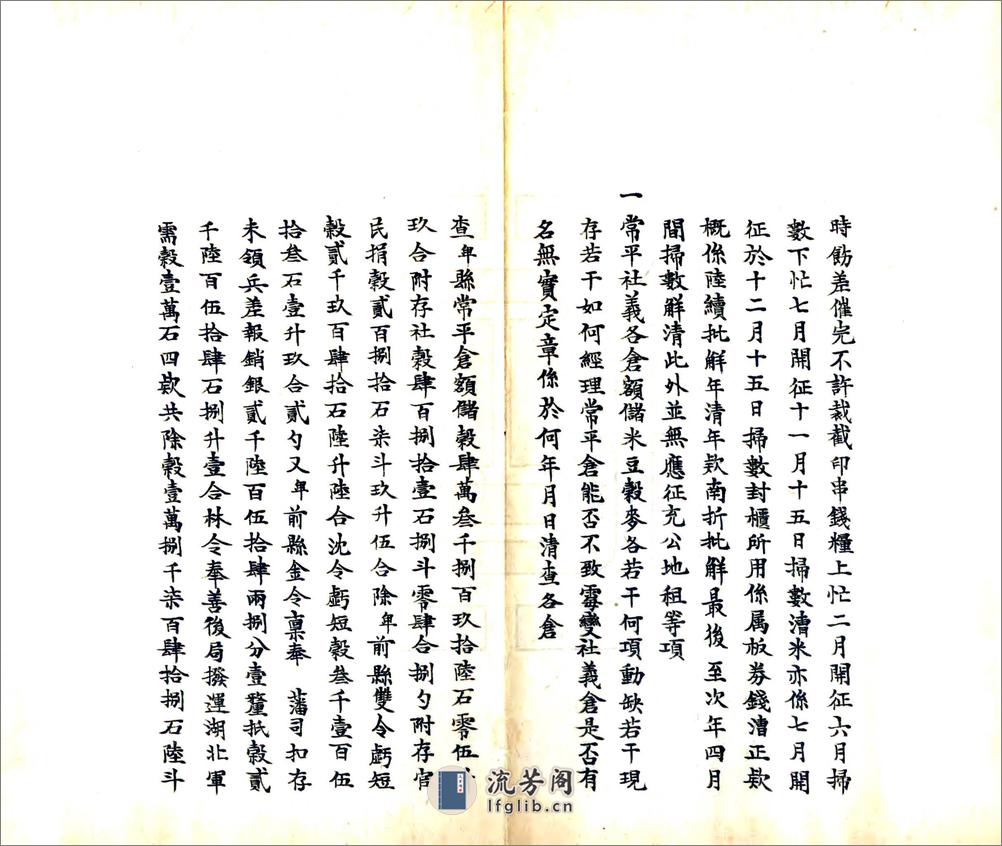 時飭差催完不許裁截印串錢糧上忙二月開征六月掃
數下忙七月開征十一月十五日掃數漕米亦係七月開
征於十二月十五日掃數封櫃所用係属板券錢漕正款
概係陸續批解年清年款南折批解最後至次年四月
間掃數解清此外並無應征充公地租等項
一常平社義各倉額儲米豆穀麥各若干何項動缺若干現
存若干如何經理常平倉能否不致霉變社義倉是否有
名無實定章係於何年月日清查各倉
查卑縣常平倉額儲穀肆萬叁千捌百玖拾陸石零伍
玖合附存社穀肆百捌拾壹石捌斗零肆合捌勺附存官
民捐穀貳百捌拾石柒斗玖升伍合除卑前縣雙令虧短
穀貳千玖百肆拾石陸升陸合沈令虧短穀叁千壹百伍
拾叁石壹升玖合貳勺又卑前縣金令稟奉 藩司扣存
未領兵差報銷銀貳千陸百伍拾肆兩捌分壹釐抵穀貳
千陸百伍拾肆石捌升壹合林令奉善後局撥運湖北軍
需穀壹萬石四款共除穀壹萬捌千柒百肆拾捌石陸斗
流芳阁
lfglib.cn